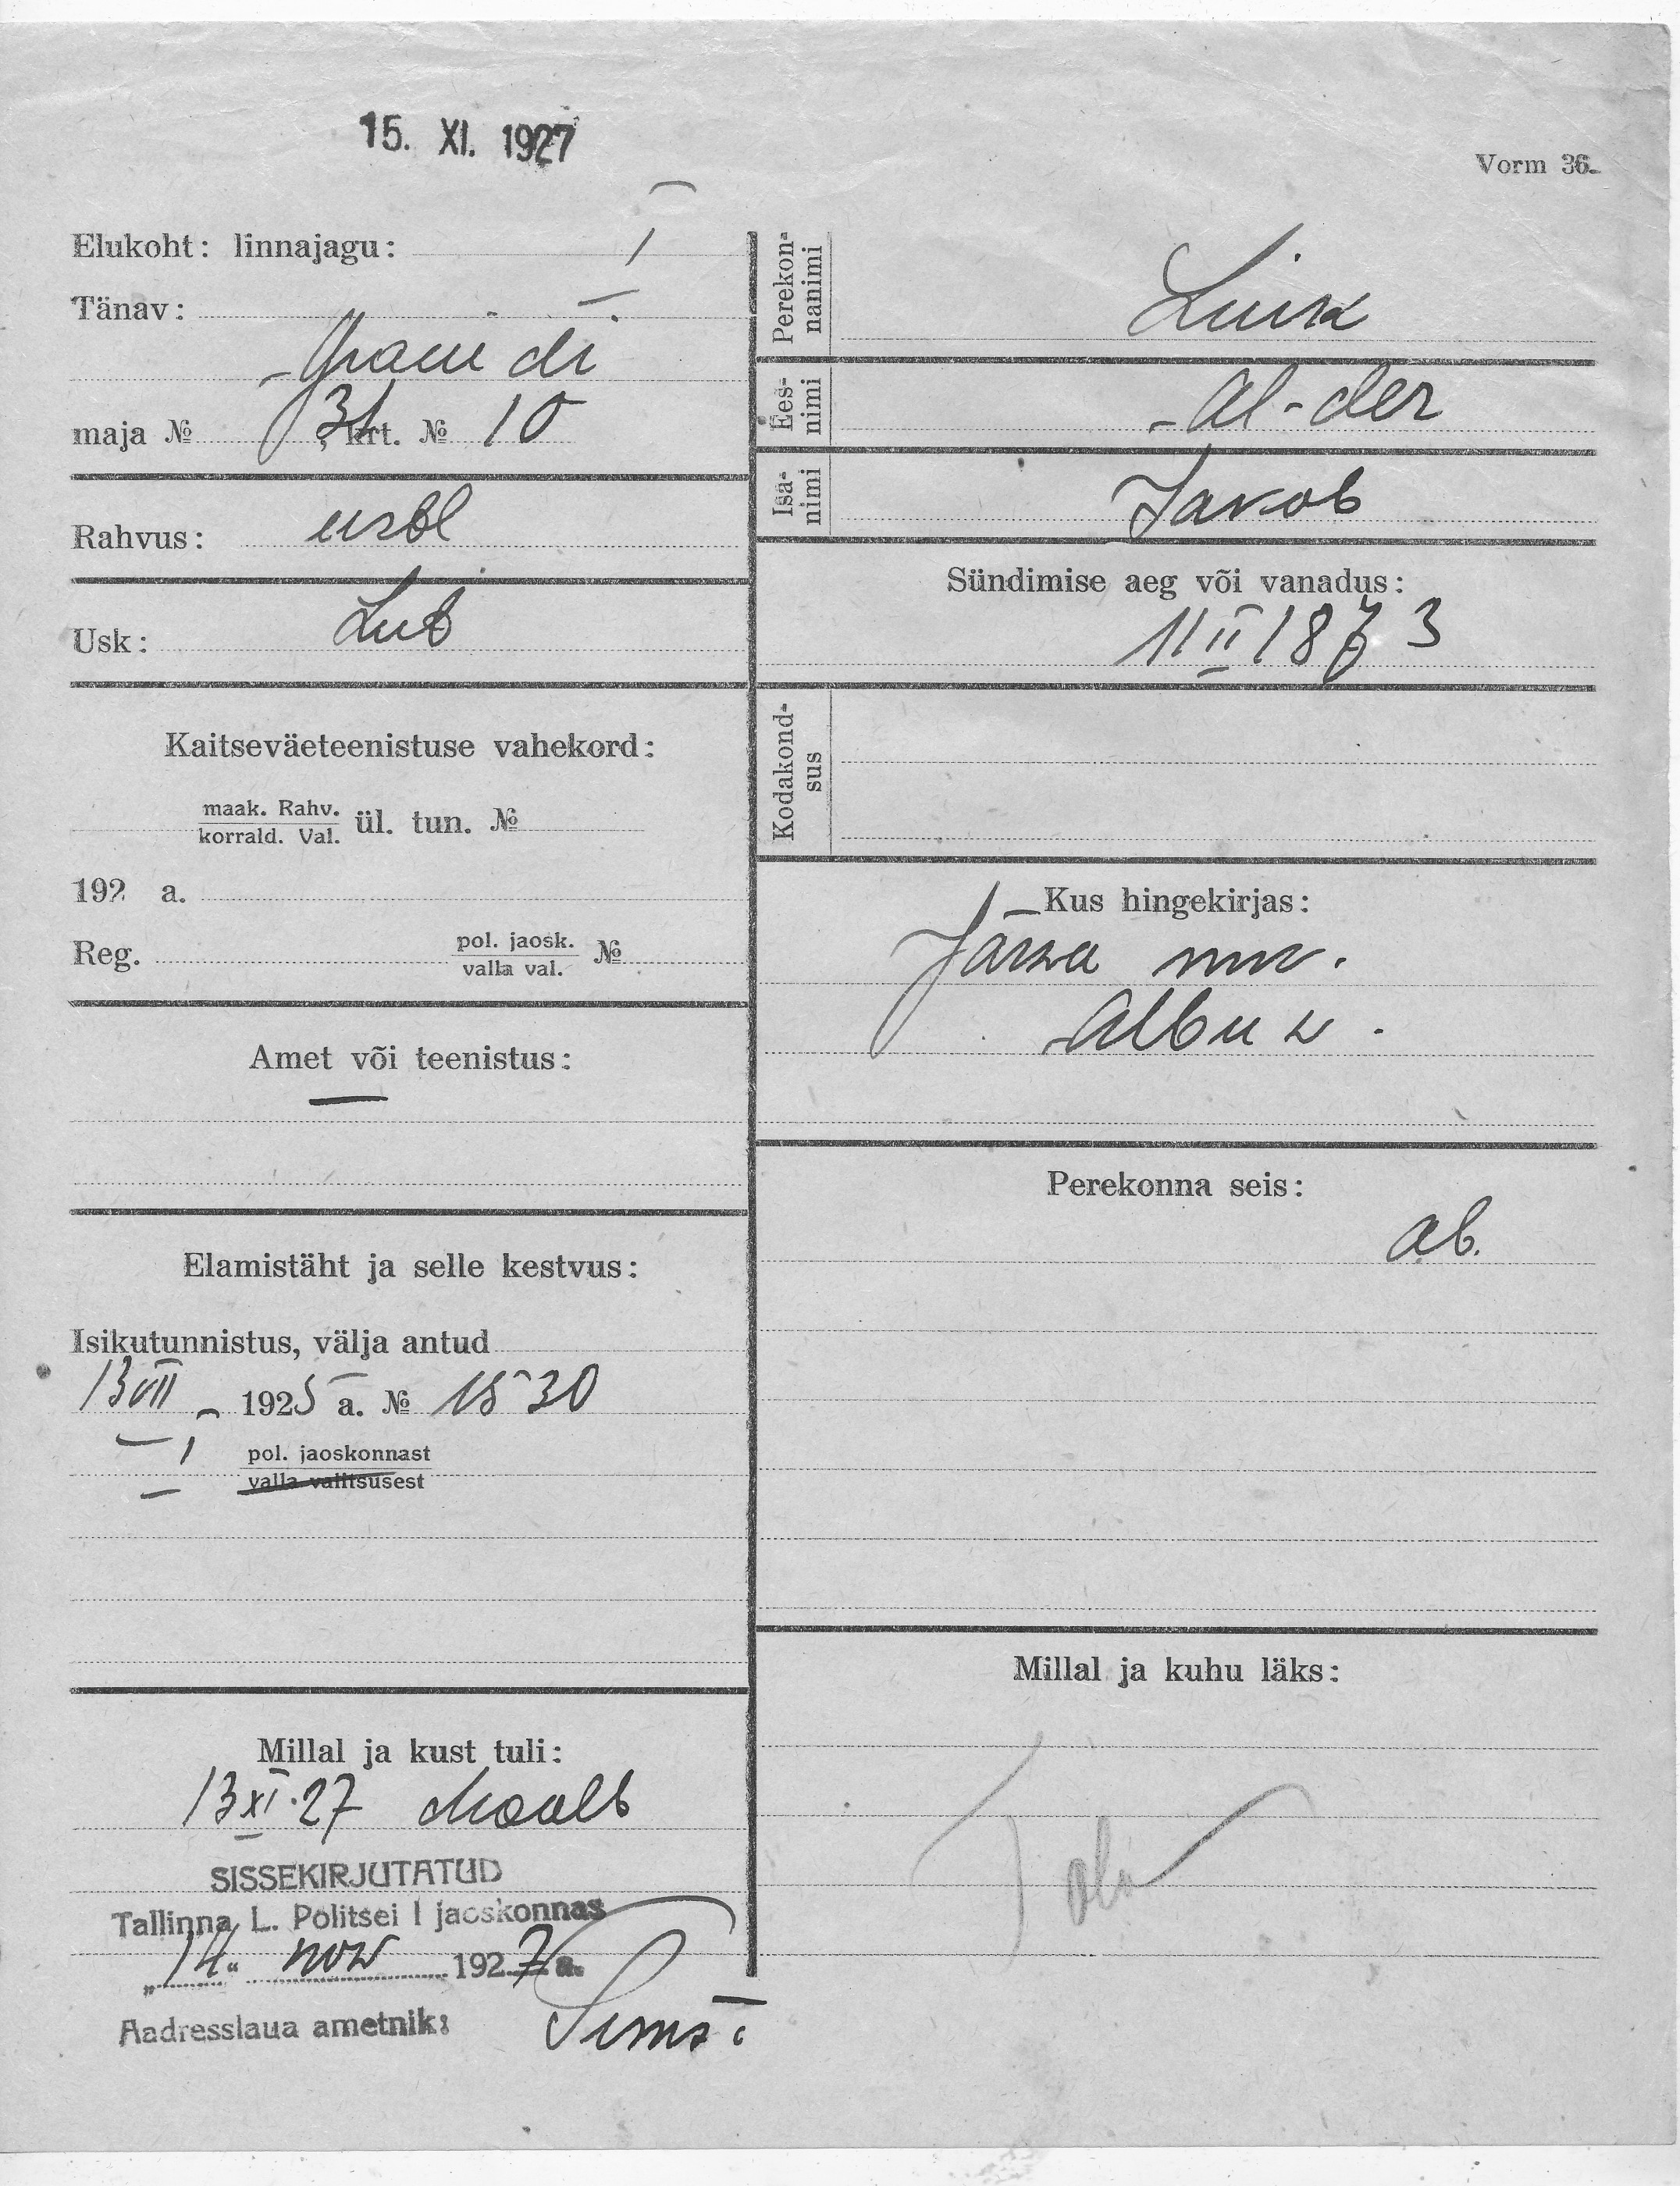 15. XI. 1927
Vorm 36.
Elukoht: linnajagu: I
Tänav:
maja № 31, krt. № 10
Rahvus: eestl
Usk: Lut
Kaitseväeteenistuse vahekord:
maak. Rahv.
korrald. Val. ül. tun. №
192 a.
Reg. pol. jaosk. №
valla val.
Amet või teenistus:
—
Elamistäht ja selle kestvus:
Isikutunnistus, välja antud
13 VII 1925 a. № 1530
I pol. jaoskonnast
valla valitsusest
Millal ja kust tuli:
13 XI. 27 Maalt
SISSEKIRJUTATUD
Tallinna L. Politsei I jaoskonnas
„14“ nov 1927 a.
Aadresslaua ametnik:
Perekon-
nanimi
Luik
Ees-
nimi
Al-der
Isa-
nimi
Jakob
Sündimise aeg või vanadus:
11 II 1873
Kodakond-
sus
Kus hingekirjas:
Järva mk.
Albu v.
Perekonna seis:
ab.
Millal ja kuhu läks: